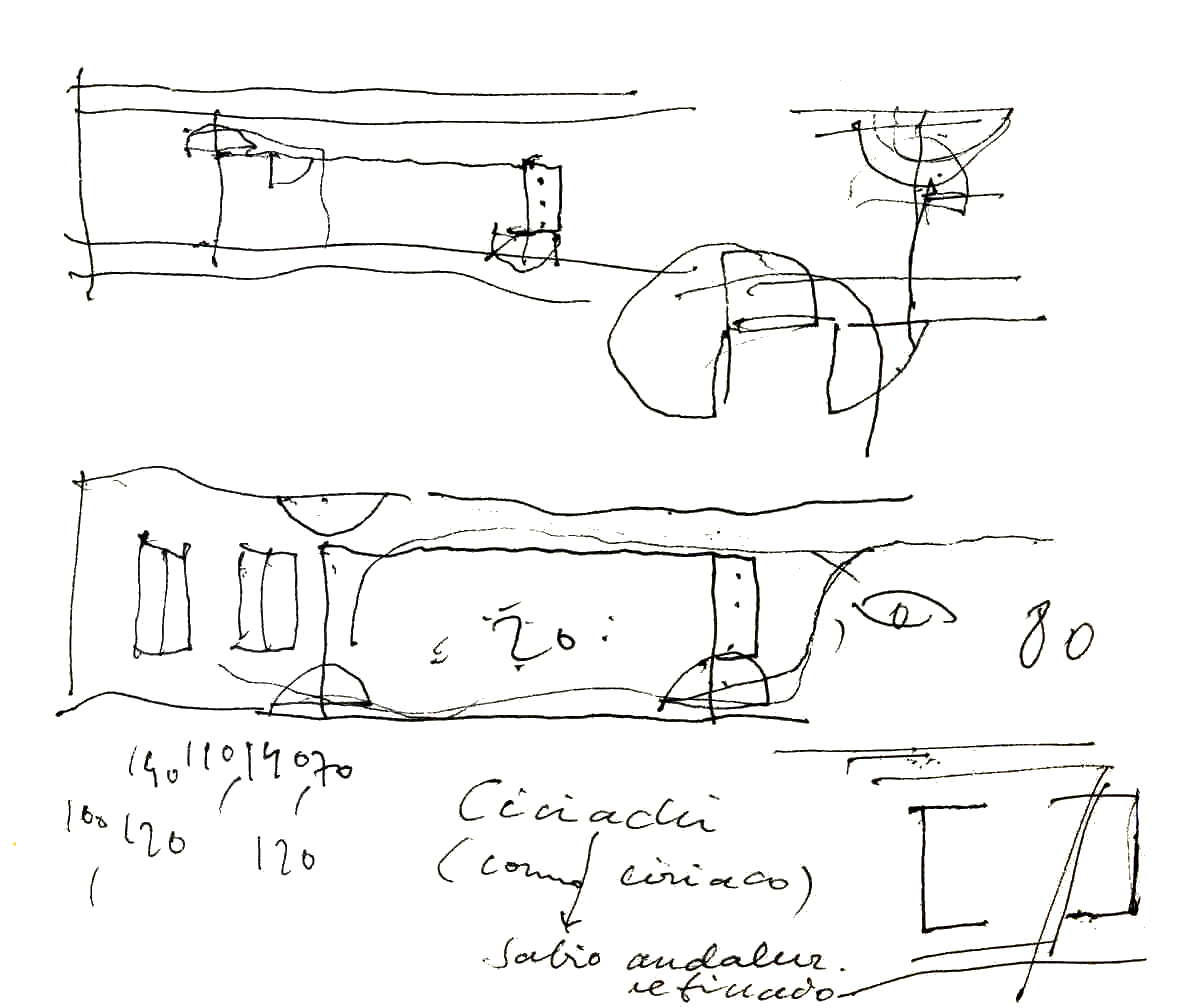 20
80
140 110 140 70
100 120 120
(como ciriaco)
sabio andaluz.
refinado